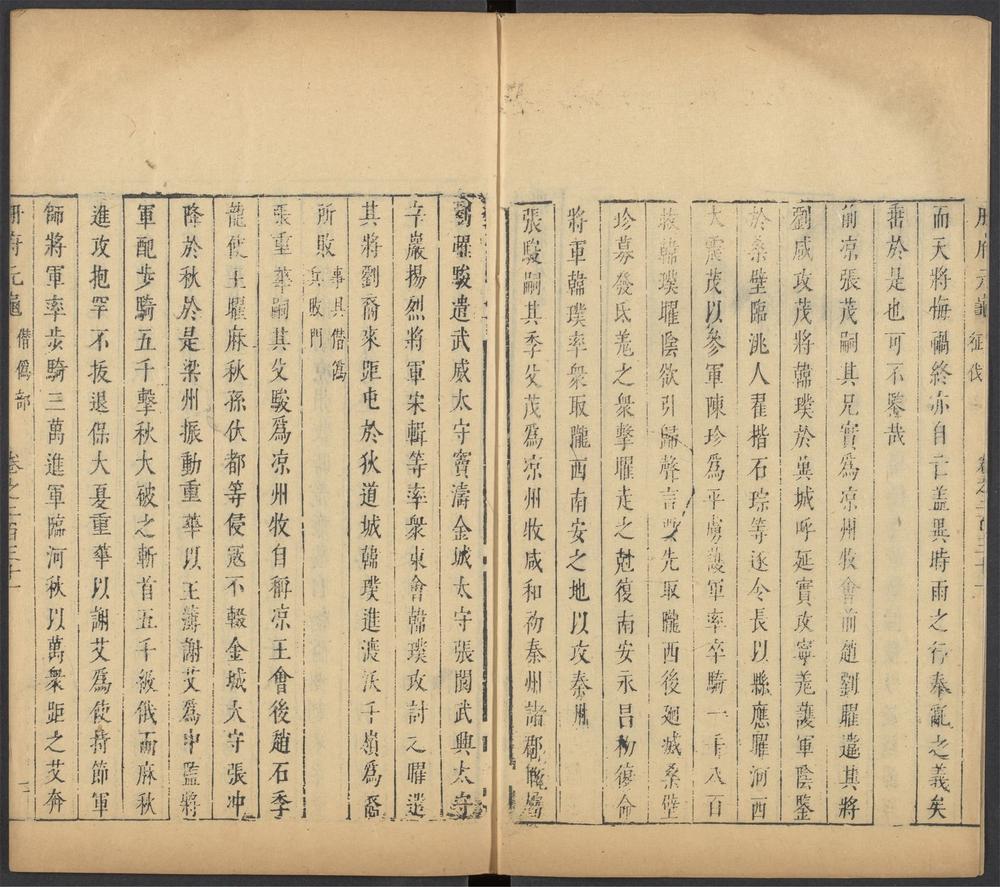 冊府元龜 征伐 卷之二百三十一
而天將悔禍終亦自亡蓋異時雨之行奉亂之義矣
垂於是也可不鑒哉
前凉張茂嗣其兄寔爲凉州牧會前趙劉曜遣其將
劉咸攻茂將韓璞於冀城呼延寔攻寧羌護軍陰鑒
於桑壁臨洮人翟揩石琮等逐令長以縣應曜河西
大震茂以參軍陳珍爲平虜護軍率卒騎一千八百
救韓璞曜陰欲引歸聲言要先取隴西後廻滅桑壁
珍募發氐羌之衆擊曜走之尅復南安永昌初復命
將軍韓璞率衆取隴西南安之地以攻秦州
張駿嗣其季父茂爲凉州牧咸和初秦州諸郡
劉曜駿遣武威太守竇濤金城太守張閬武興太守
辛巖揚烈將軍宋輯等率衆東會韓璞攻討之曜遣
其將劉裔來距屯於狄道城韓璞進渡沃干嶺爲裔
所敗 事具僭僞兵敗門
張重華嗣其父駿爲凉州牧自稱凉王會後趙石季
龍使王曜麻秋孫伏都等侵寇不輟金城太守張冲
降於秋於是梁州振動重華以主簿謝艾爲中監將
軍配步騎五千擊秋大破之斬首五千級俄而麻秋
進攻抱罕不拔退保大夏重華以謝艾爲使持節軍
師將軍率步騎三萬進軍臨河秋以萬衆距之艾奔
冊府元龜 僭僞部 卷之二百三十一 二